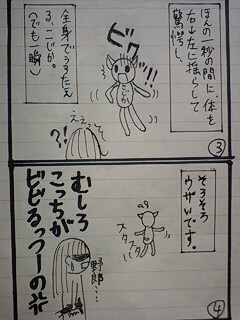 ほんの一秒の間に、体を
右に左に揺らして
驚愕し、
ビクゥ!!
こじか
全身でうろたえ
る、こじか。
(でも一瞬)
ええっ、そ
?!
③
そろそろ
ウザいです。
スタスタ
むしろ
こっちが
ビビるっつーの
野郎……
④